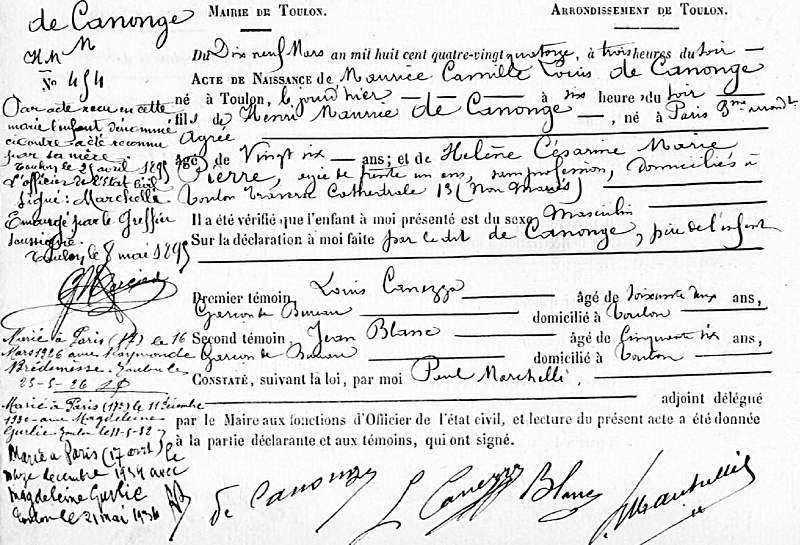 de Canonge
MAIRIE DE TOULON.
ARRONDISSEMENT DE TOULON.
No 454
Par acte reçu en cette
mairie l'enfant dénommé
ci contre a été reconnu
par sa mère.
Toulon le 29 avril 1895
L'officier de l'état civil
Signé: Marchelli
Emargé par le Greffier
soussigné.
Toulon, le 8 mai 1895
Marié à Paris (17e) le 16
Mars 1926 avec Raymonde
Toulon le
25-5-26
Marié à Paris (17e) le 11 décembre
avec Magdeleine
Gerlie. Toulon le
Marié à Paris (17 arrdt) le
onze décembre avec
Magdeleine Gerlie
Toulon le 21 mai
Du Dix neuf Mars an mil huit cent quatre-vingt quatorze, à trois heures du soir
ACTE DE NAISSANCE de Maurice Camille Louis de Canonge
né à Toulon, le jour d'hier à six heure du soir
fils de Henri Maurice de Canonge, né à Paris 9me arrondt
âgé de Vingt six ans; et de Helène Césarine Marie
Pierre, agée de trente un ans, sans profession, domiciliés à
Toulon Traverse Cathédrale 13 (Non Mariés)
Il a été vérifié que l'enfant à moi présenté est du sexe Masculin
Sur la déclaration à moi faite par le dit de Canonge, père de l'enfant
Premier témoin, Louis Canezza âgé de soixante deux ans,
Garçon de Bureau domicilié à Toulon
Second témoin, Jean Blanc âgé de Cinquante six ans,
Garçon de Bureau domicilié à Toulon
CONSTATÉ, suivant la loi, par moi Paul Marchelli,
adjoint délégué
par le Maire aux fonctions d'Officier de l'état civil, et lecture du présent acte a été donnée
à la partie déclarante et aux témoins, qui ont signé.
de Canonge L Canezza Blanc Marchelli